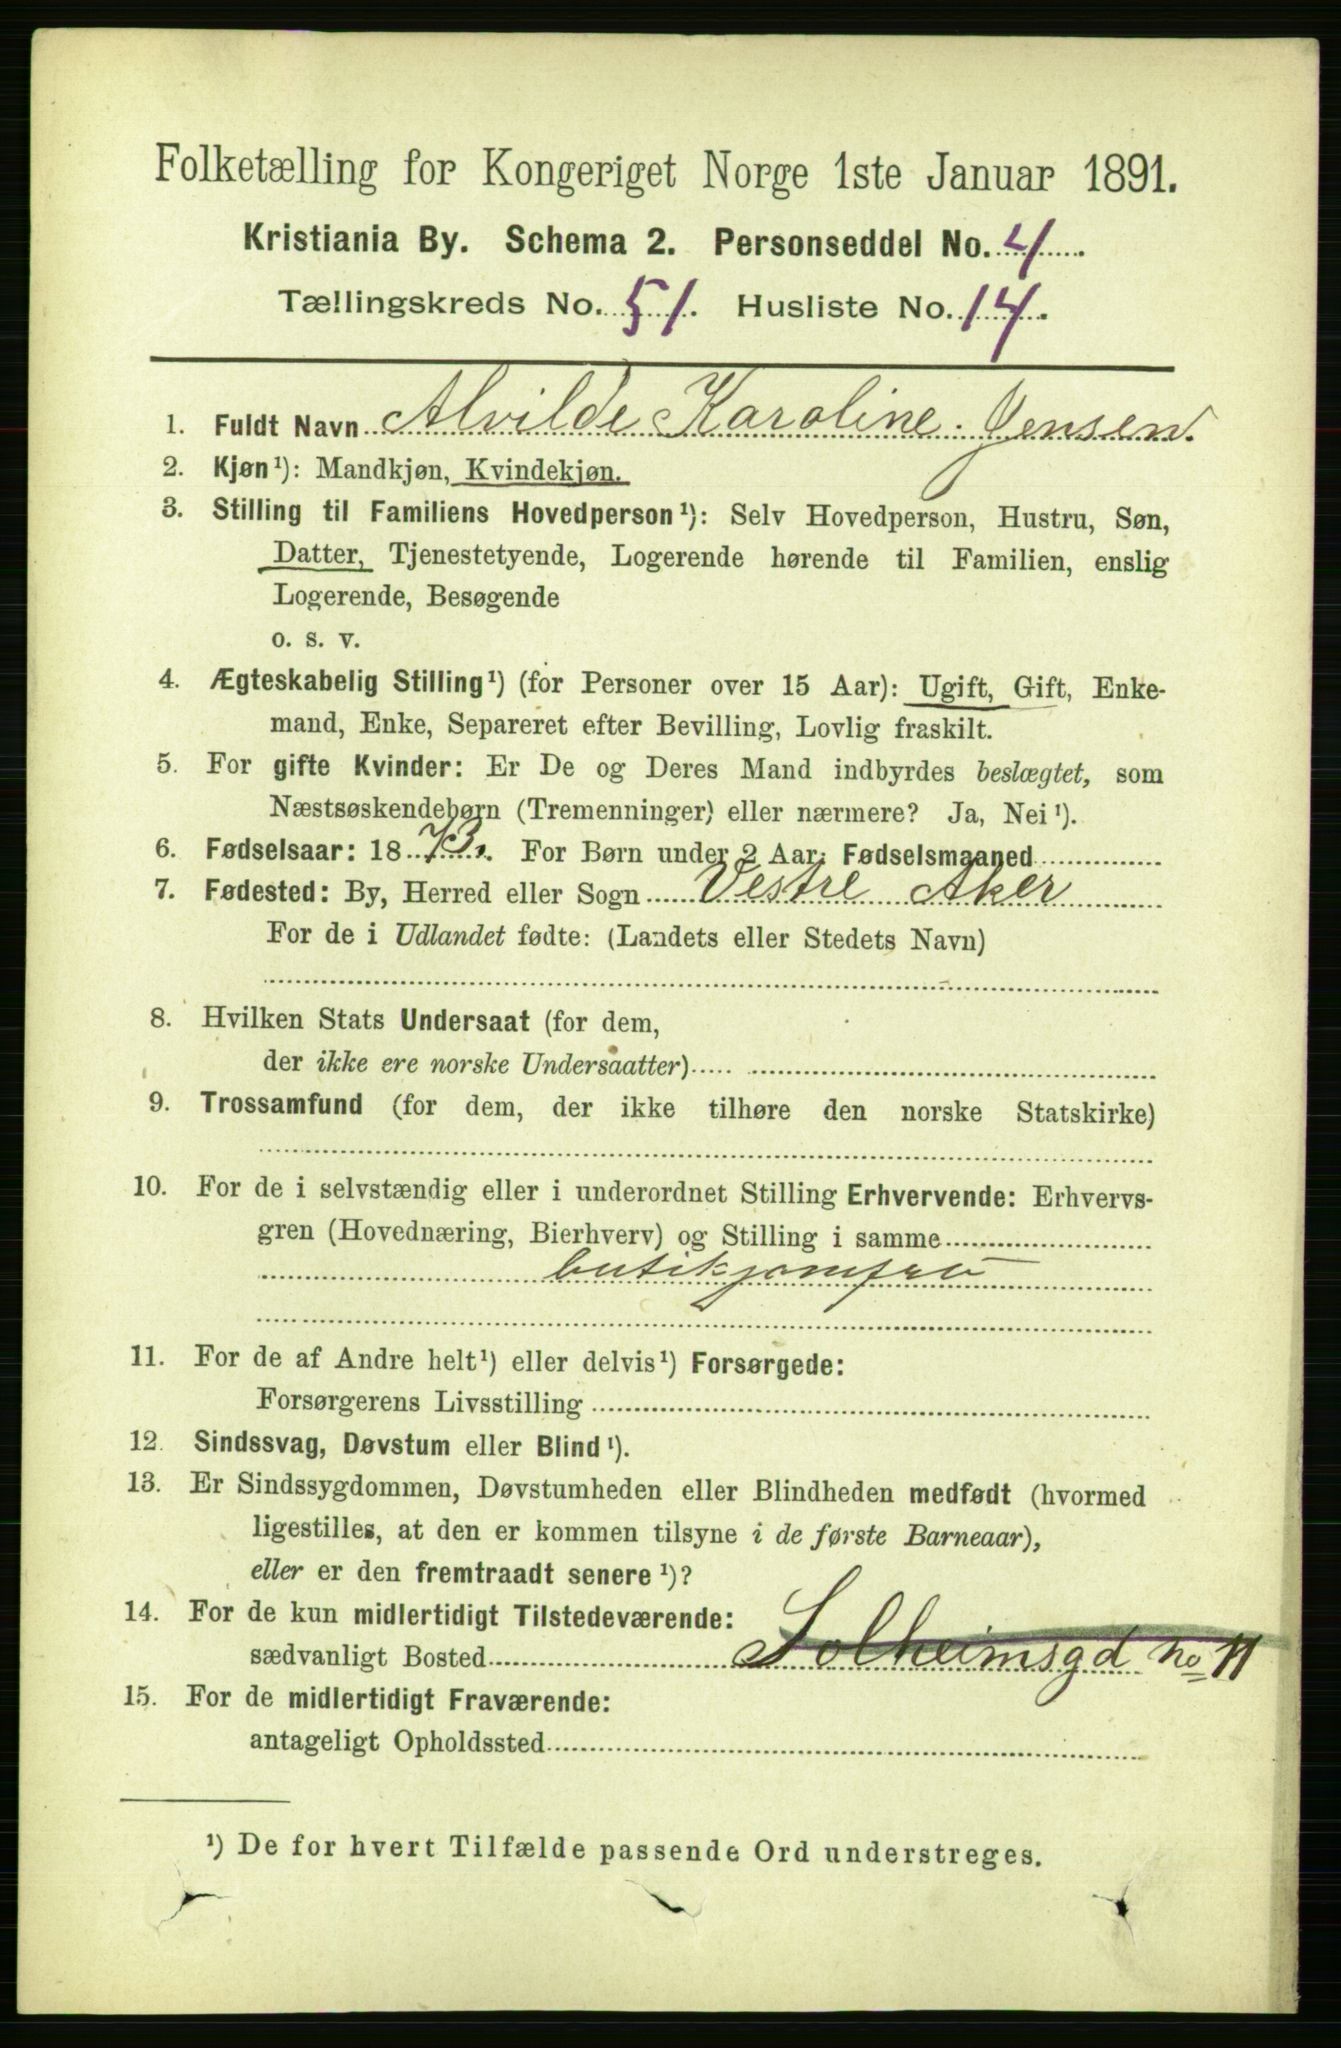 Folketælling for Kongeriget Norge 1ste Januar 1891.
Kristiania By. Schema 2. Personseddel No. 4.
Tællingskreds No. 51. Husliste No. 14.
1. Fuldt Navn Alvilde Karoline Jensen.
2. Kjøn¹): Mandkjøn, Kvindekjøn.
3. Stilling til Familiens Hovedperson¹): Selv Hovedperson, Hustru, Søn,
Datter, Tjenestetyende, Logerende hørende til Familien, enslig
Logerende, Besøgende
o. s. v.
4. Ægteskabelig Stilling¹) (for Personer over 15 Aar): Ugift, Gift, Enke-
mand, Enke, Separeret efter Bevilling, Lovlig fraskilt.
5. For gifte Kvinder: Er De og Deres Mand indbyrdes beslægtet, som
Næstsøskendebørn (Tremenninger) eller nærmere? Ja, Nei¹).
6. Fødselsaar: 1873. For Børn under 2 Aar: Fødselsmaaned
7. Fødested: By, Herred eller Sogn Vestre Aker
For de i Udlandet fødte: (Landets eller Stedets Navn)
8. Hvilken Stats Undersaat (for dem,
der ikke ere norske Undersaatter)
9. Trossamfund (for dem, der ikke tilhøre den norske Statskirke)
10. For de i selvstændig eller i underordnet Stilling Erhvervende: Erhvervs-
gren (Hovednæring, Bierhverv) og Stilling i samme
butikjomfru
11. For de af Andre helt¹) eller delvis¹) Forsørgede:
Forsørgerens Livsstilling
12. Sindssvag, Døvstum eller Blind¹).
13. Er Sindssygdommen, Døvstumheden eller Blindheden medfødt (hvormed
ligestilles, at den er kommen tilsyne i de første Barneaar),
eller er den fremtraadt senere¹)?
14. For de kun midlertidigt Tilstedeværende:
sædvanligt Bosted Solheimsgd no 11
15. For de midlertidigt Fraværende:
antageligt Opholdssted
¹) De for hvert Tilfælde passende Ord understreges.